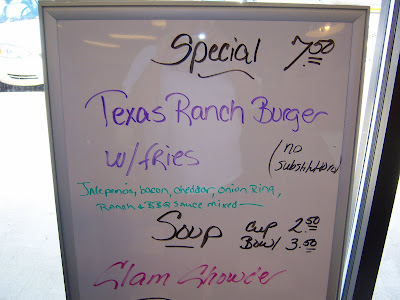 Special 7.50
Texas Ranch Burger
w/fries
(no
substitutions)
Jalepenos, bacon, cheddar, onion ring,
Ranch & BBQ sauce mixed—
Soup Cup 2.50
Bowl 3.50
Clam Chowder